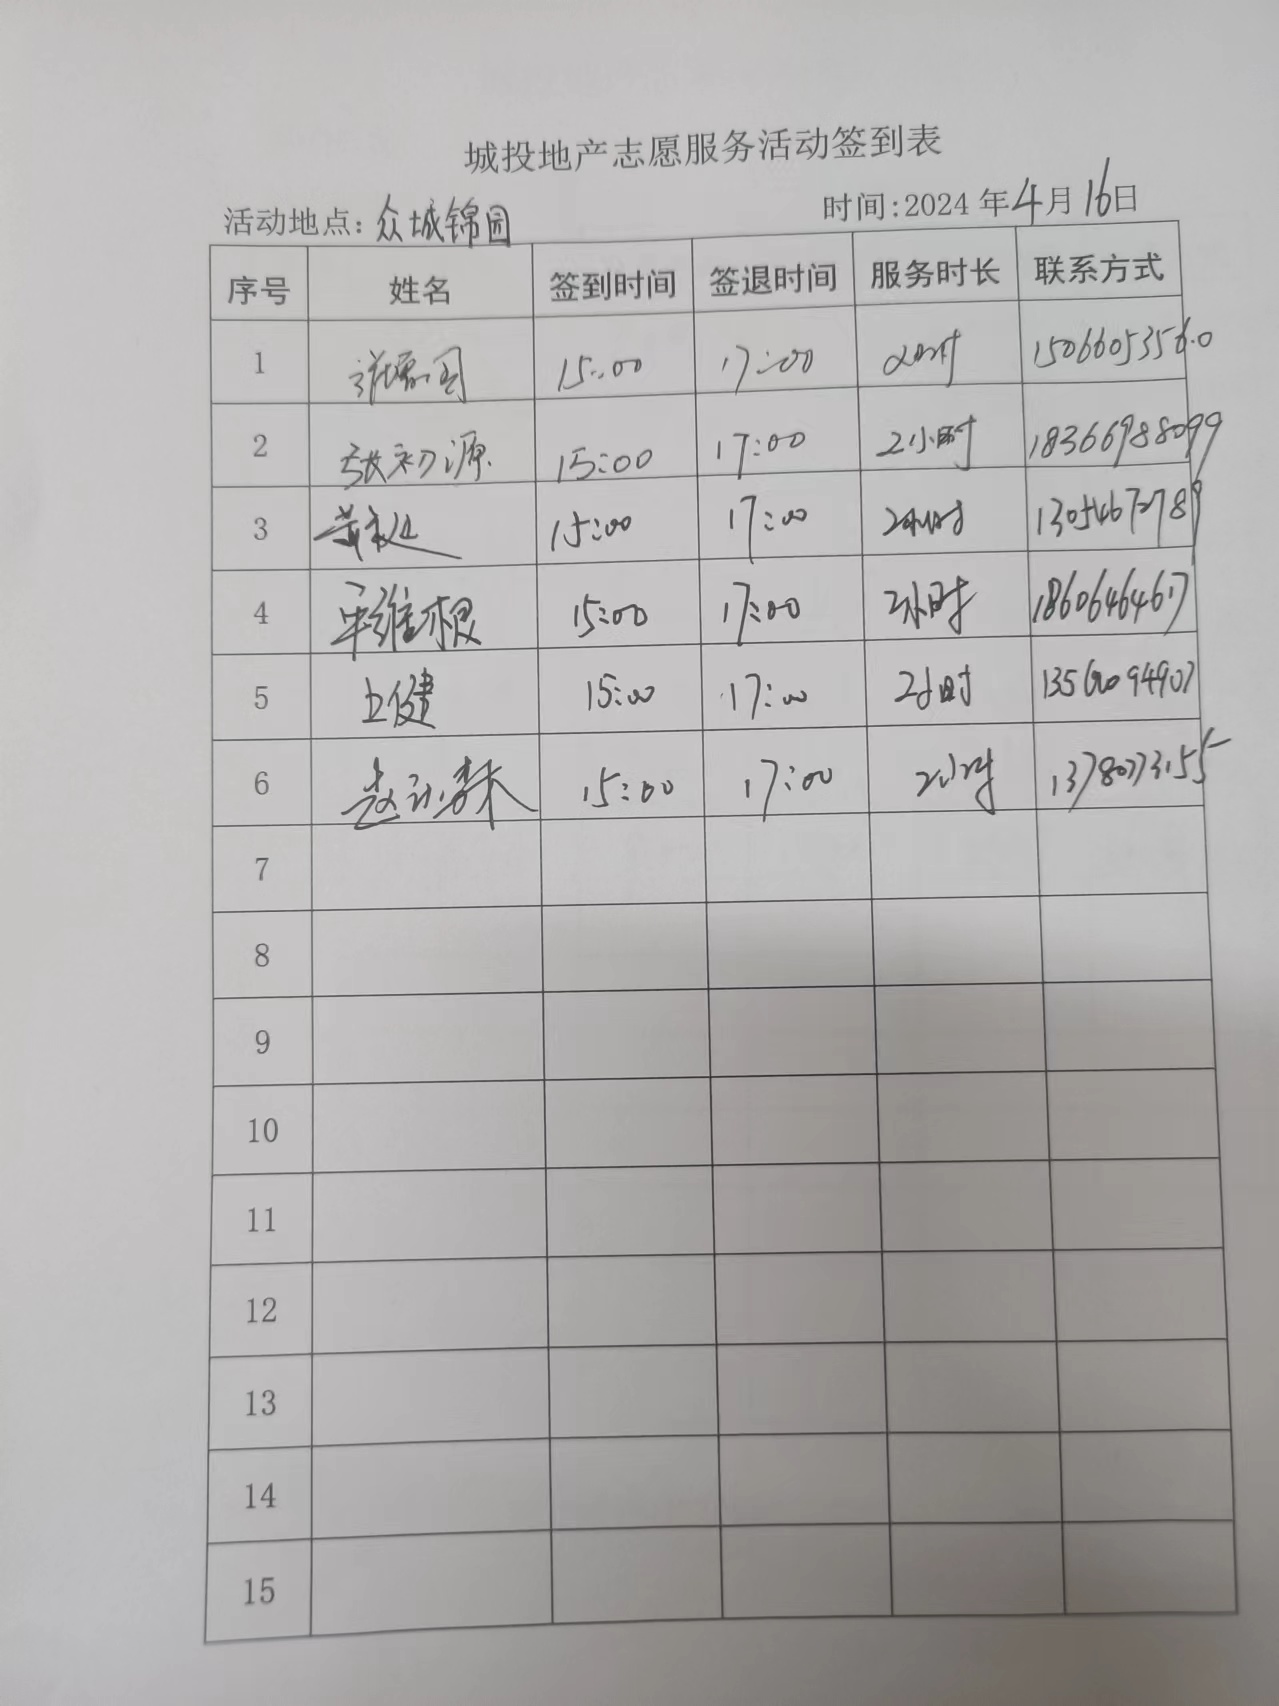 城投地产志愿服务活动签到表
活动地点：众城锦园 时间：2024年4月16日
序号 姓名 签到时间 签退时间 服务时长 联系方式
1 15:00 17:00 2小时 15066053560
2 张初源 15:00 17:00 2小时 18366988099
3 15:00 17:00 2小时 13054672789
4 15:00 17:00 2小时 18606464617
5 王健 15:00 17:00 2小时
6 15:00 17:00 2小时
7
8
9
10
11
12
13
14
15